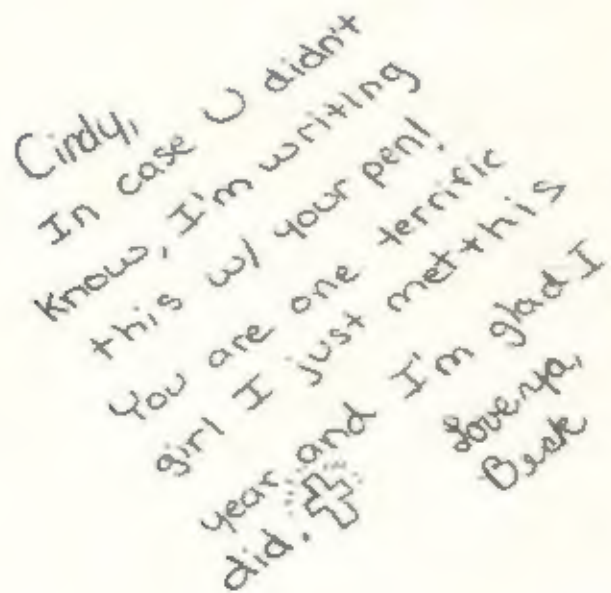 Cindy,
In case U didn't
know, I'm writing
this w/ your pen!
You are one terrific
girl I just met this
year and I'm glad I
did.
Love ya,